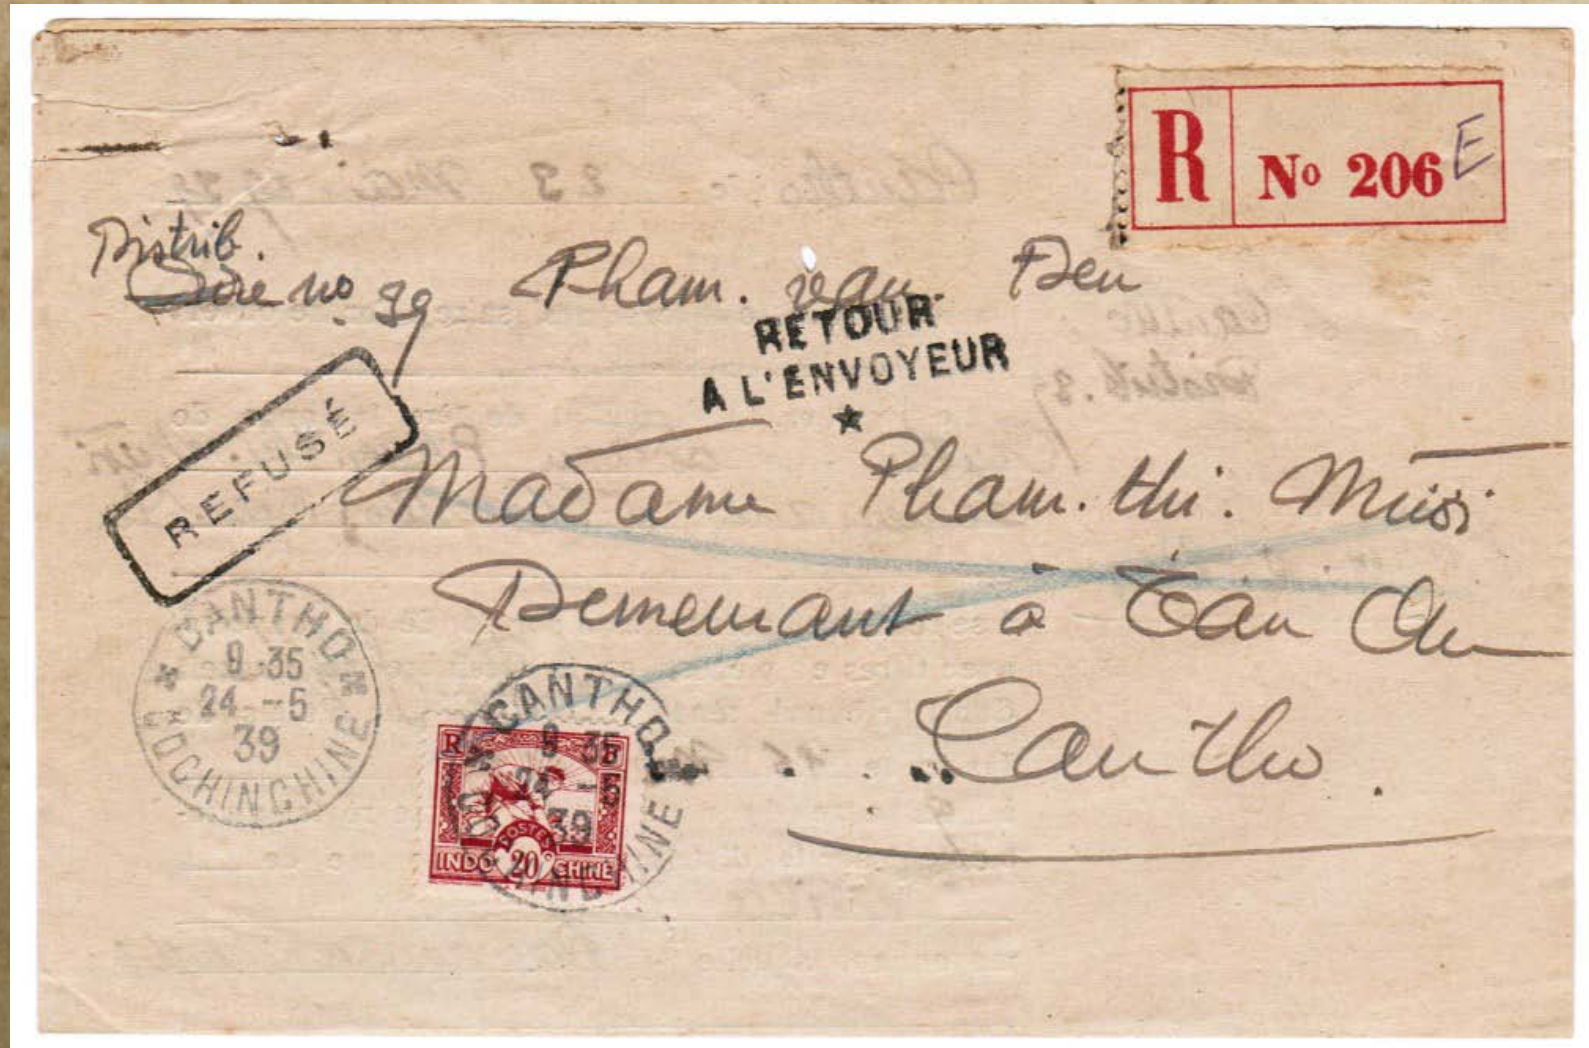 R No 206 E
Distrib.
no 39 Pham. van. Den
RETOUR
A L'ENVOYEUR
REFUSÉ
Madame Pham. thi. Mười
Demeurant à Tân An
Cantho.
CANTHO
9 35
24 -5
39
COCHINCHINE
CANTHO
9 35
24 -5
39
COCHINCHINE
RF
POSTES
INDO 20c CHINE